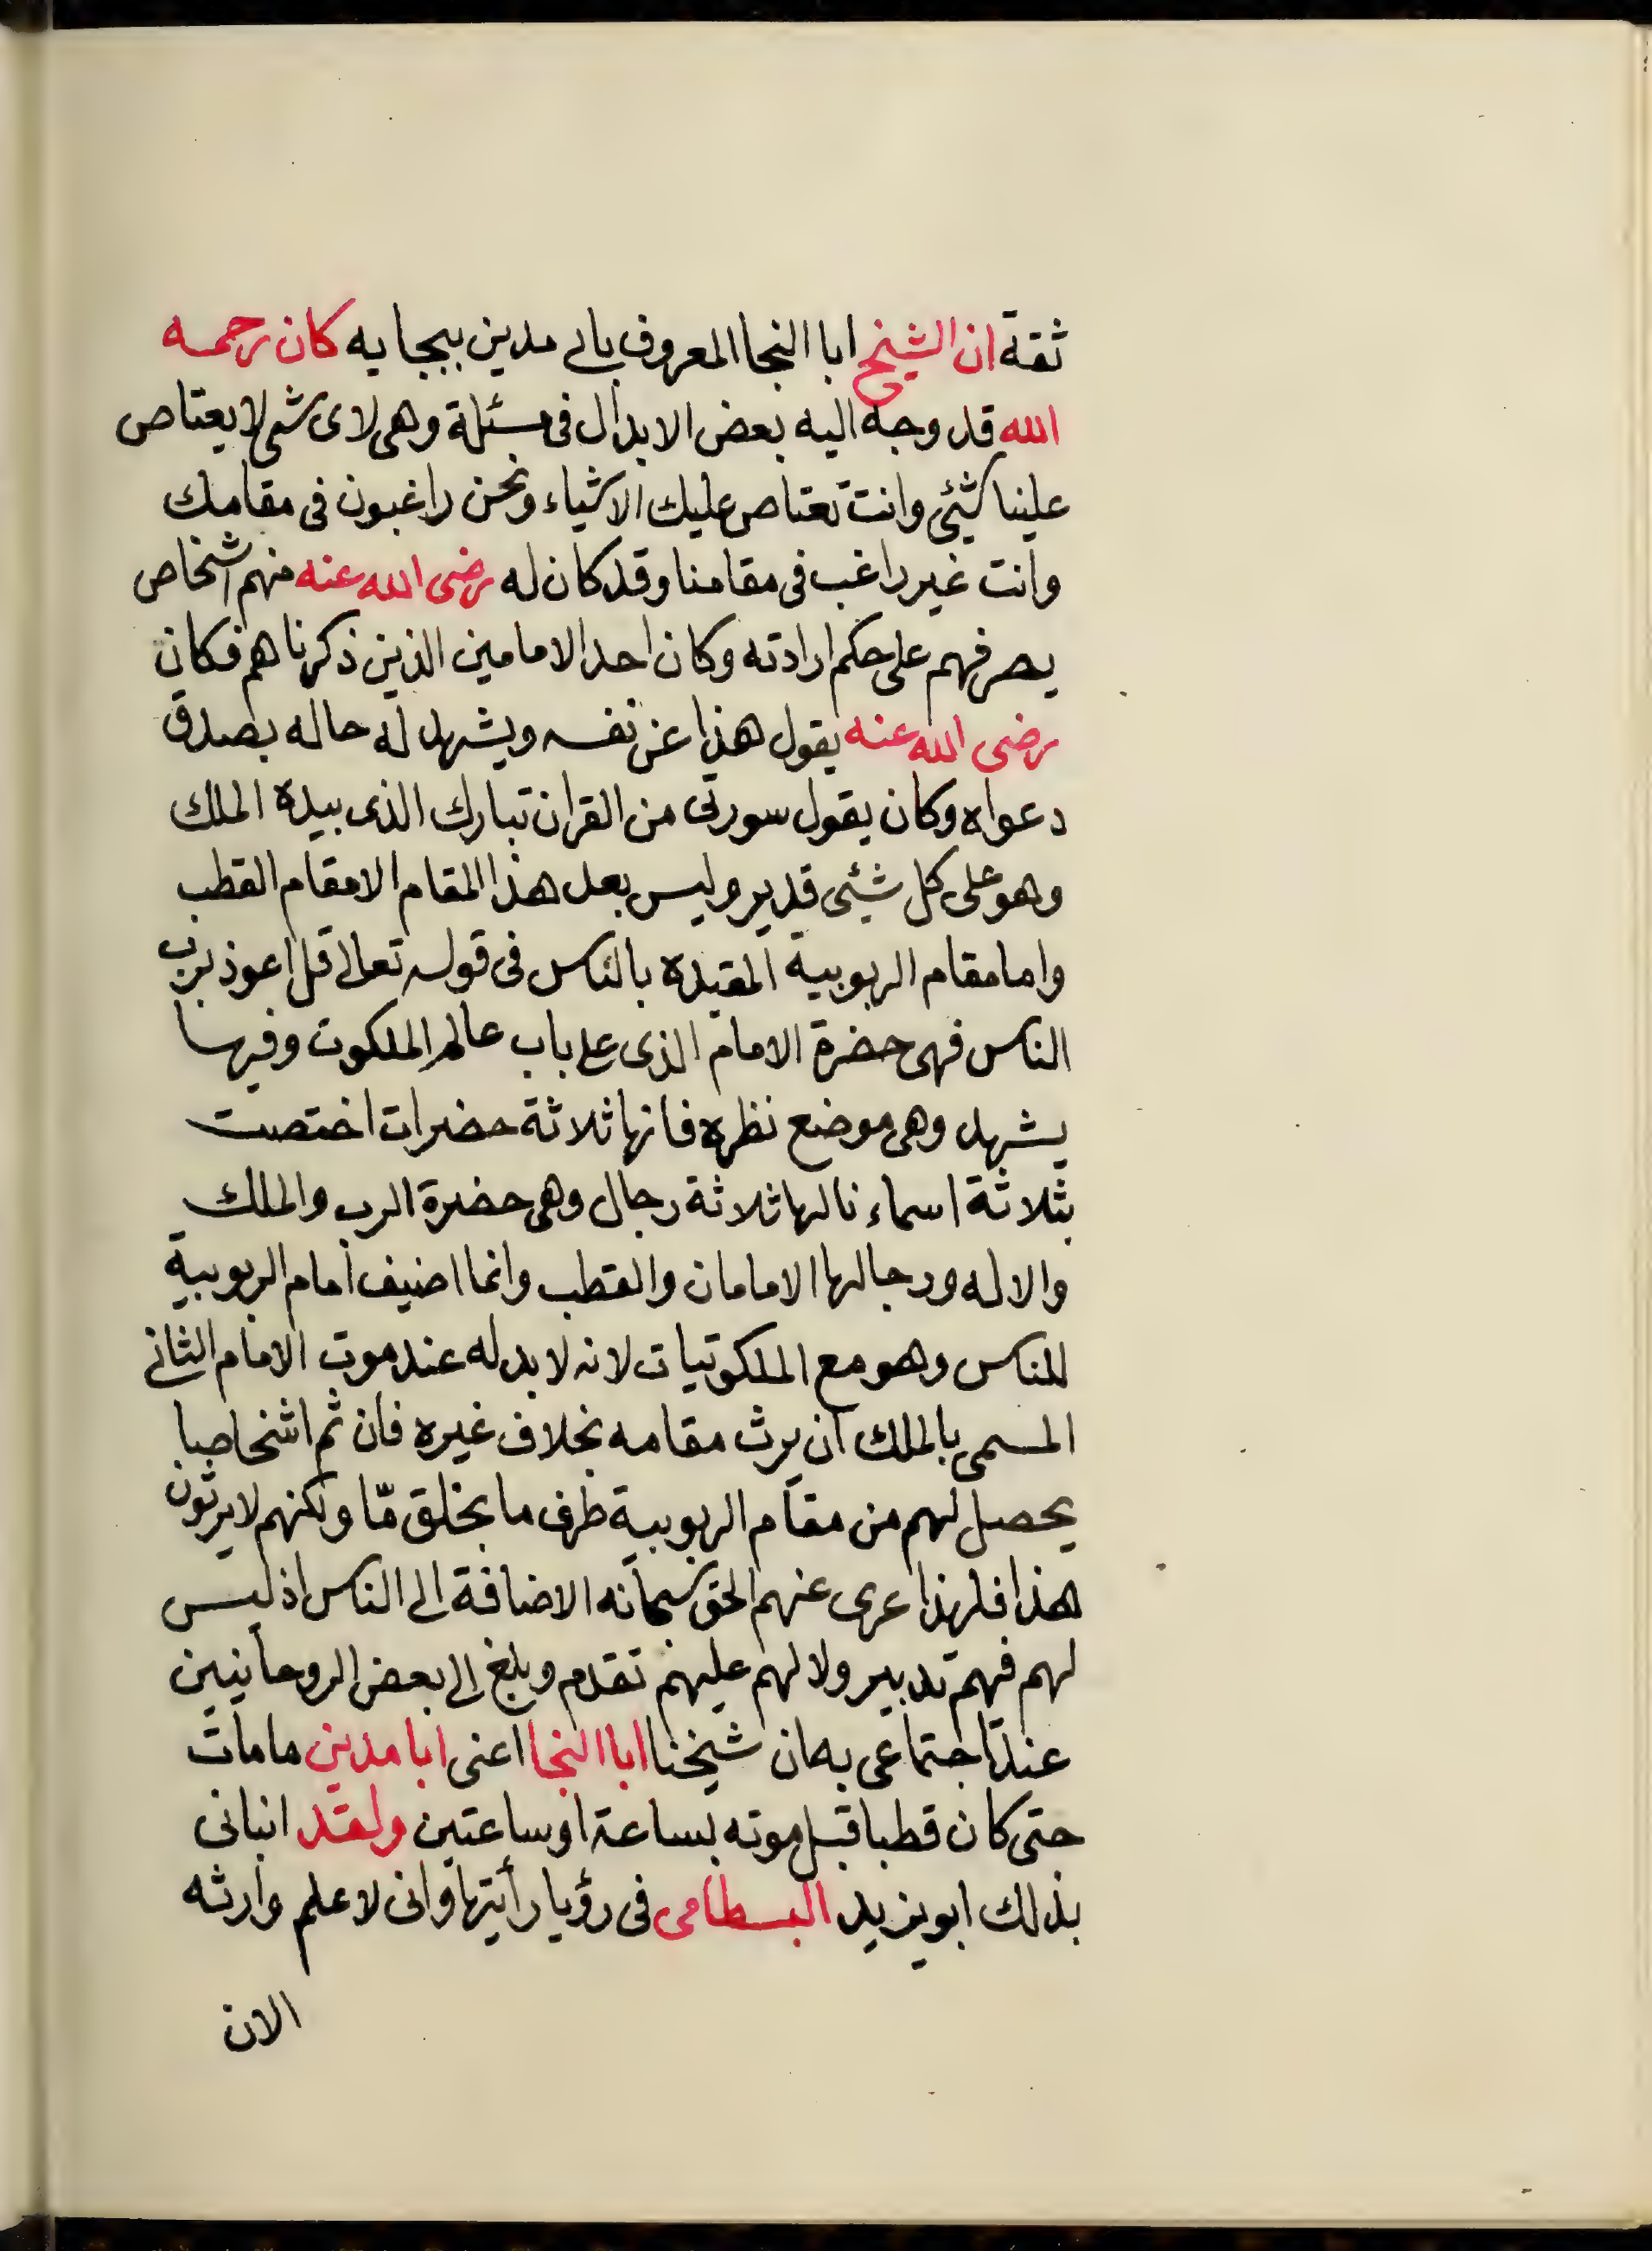 ثقة ان الشيخ ابا النجا المعروف بابى مدين ببجايه كان رحمه
الله قد وجه اليه بعض الابدال فى مسئلة وهى لاى شى لا يعتاص
علينا شئى وانت تعتاص عليك الاشياء ونحن راغبون فى مقامك
وانت غير راغب فى مقامنا وقد كان له رضى الله عنه منهم اشخاص
يصرفهم على حكم ارادته وكان احد الامامين الذين ذكرناهم فكان
رضى الله عنه يقول هذا عن نفسه ويشهد له حاله بصدق
دعواه وكان يقول سورتى من القران تبارك الذى بيده الملك
وهو على كل شئى قدير وليس بعد هذا المقام الا مقام القطب
واما مقام الربوبية المقيده بالناس فى قوله تعالى قل اعوذ برب
الناس فهى حضرة الامام الذى على باب عالم الملكوت وفيها
يشهد وهى موضع نظره فانها ثلاثة حضرات اختصت
بثلاثة اسماء نالها ثلاثة رجال وهى حضرة الرب والملك
والاله ورجالها الامامان والقطب وانما اضيف امام الربوبية
للناس وهو مع الملكوتيات لانه لا بد له عند موت الامام الثانى
المسمى بالملك ان يرث مقامه بخلاف غيره فان ثم اشخاصا
يحصل لهم من مقام الربوبية طرف ما بخلق مّا ولكنهم لا يرثون
هذا فلهذا عرى عنهم الحق سبحانه الاضافة الى الناس اذ ليس
لهم فهم تدبير ولا لهم عليهم تقدم وبلغ الى بعض الروحانيين
عند اجتماعى به ان شيخنا ابا النجا اعنى ابا مدين ما مات
حتى كان قطبا قبل موته بساعة او ساعتين ولقد انبانى
بذلك ابو يزيد البسطامى فى رؤيا رأيتها وانى لاعلم وارثه
الان